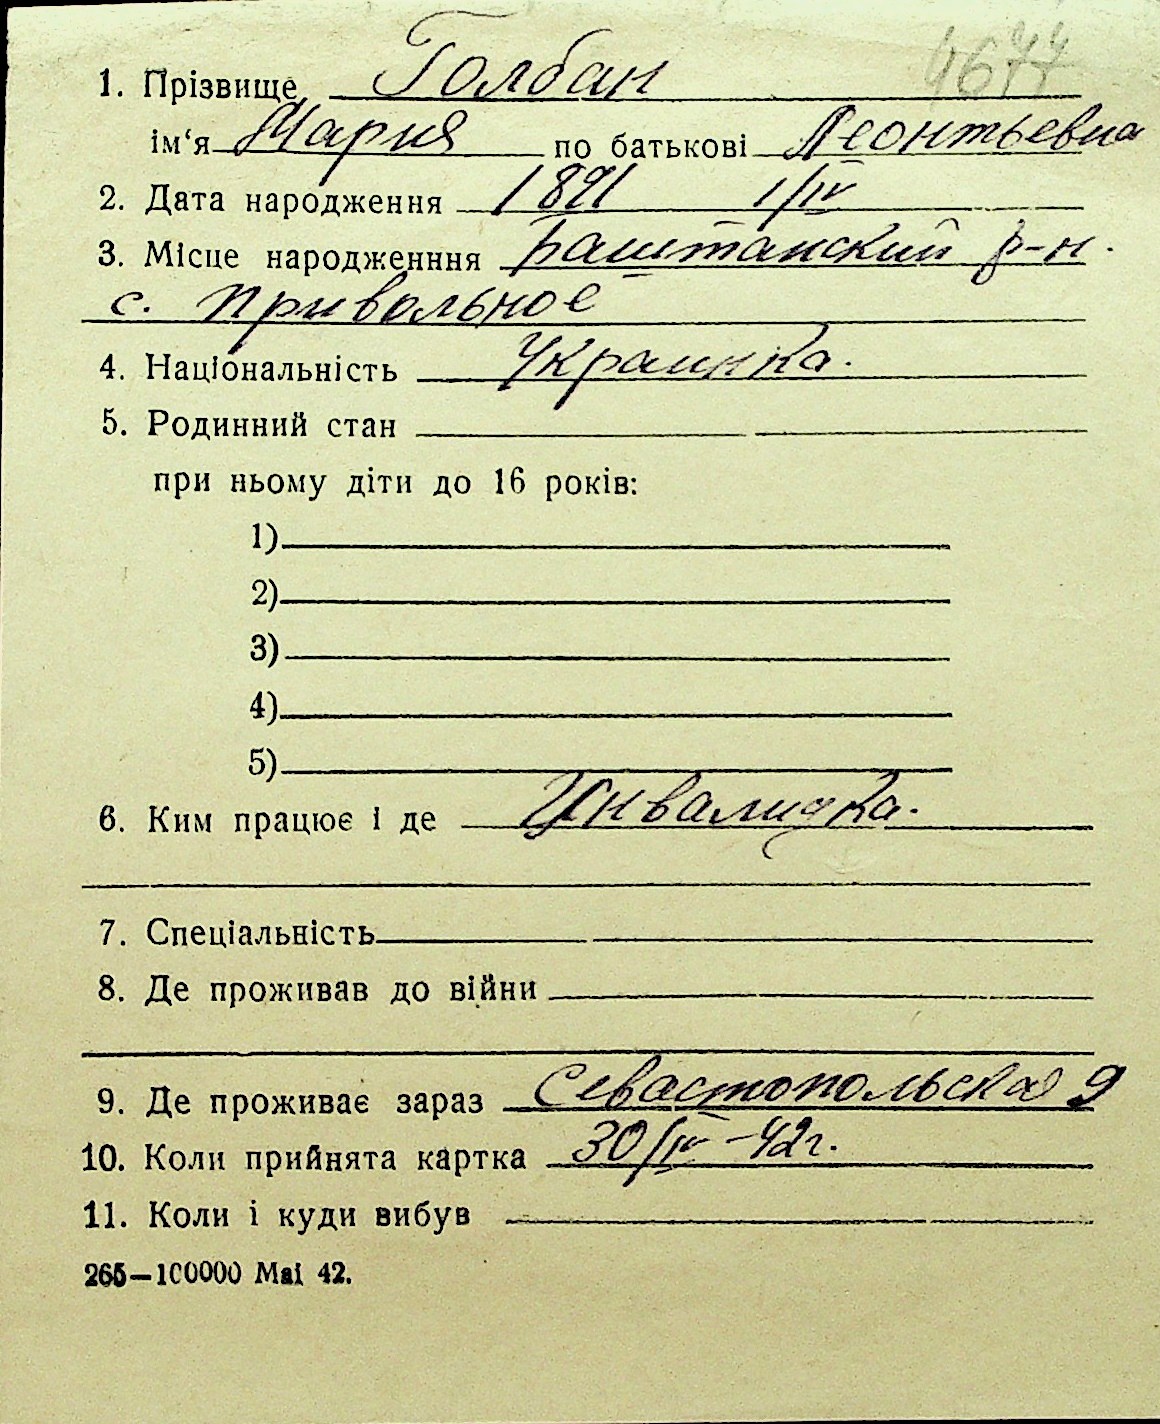 4677
1. Прізвище Голбан
ім‘я Мария по батькові Леонтьевна
2. Дата народження 1891 1/IV
3. Місце народженння Баштанский р-н.
с. Привольное
4. Національність Украинка.
5. Родинний стан
при ньому діти до 16 років:
1)
2)
3)
4)
5)
6. Ким працює і де Инвалидка.
7. Спеціальність
8. Де проживав до війни
9. Де проживає зараз Севастопольская 9
10. Коли прийнята картка 30/IV-42г.
11. Коли і куди вибув
265—100000 Mai 42.